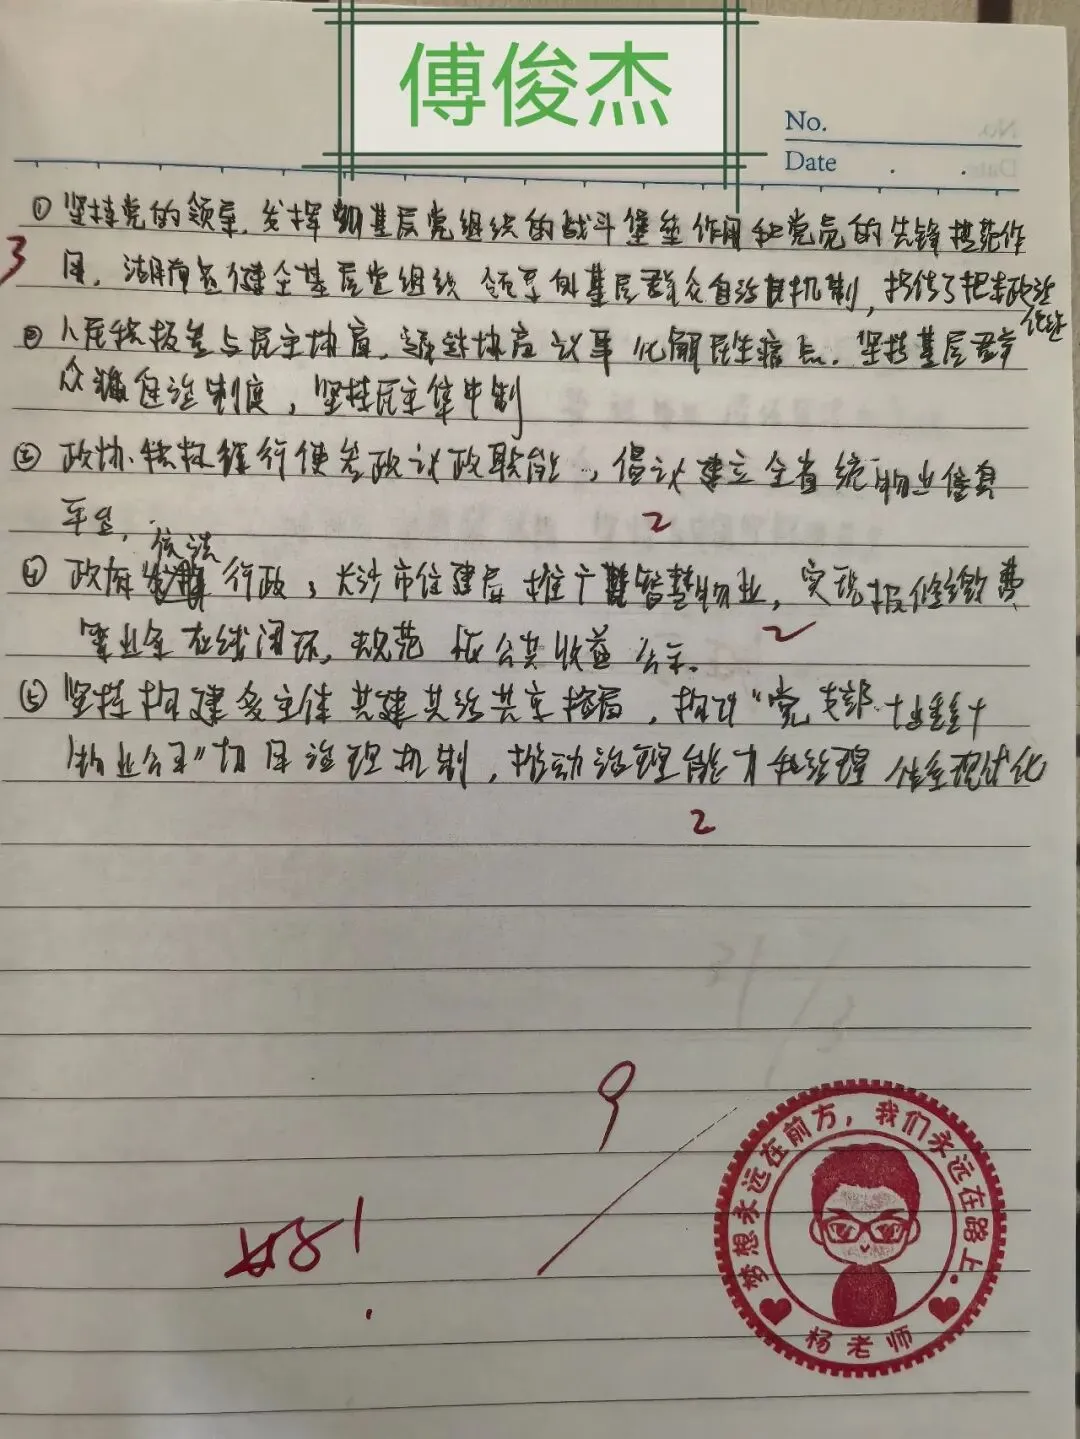 傅俊杰
No.
Date
① 坚持党的领导,发挥基层党组织的战斗堡垒作用和党员的先锋模范作
3
用,湖南省健全基层党组织 领导的基层群众自治机制,
② 人民积极参与民主协商,通过协商议事 化解民生痛点,坚持基层群
众自治制度,坚持民主集中制
③ 政协积极履行使参政议政职能,倡议建立全省统一物业信息
平台,
2
依法
④ 政府行政,长沙市住建局推广智慧物业,实现报修缴费
等业务在线闭环,规范公共收益公示。
2
⑤ 坚持构建多主体共建共治共享格局,构建“党支部+业委会+
物业公司”协同治理机制,推动治理能力和治理体系现代化
2
9
好!
梦想永远在前方,我们永远在路上.
杨老师